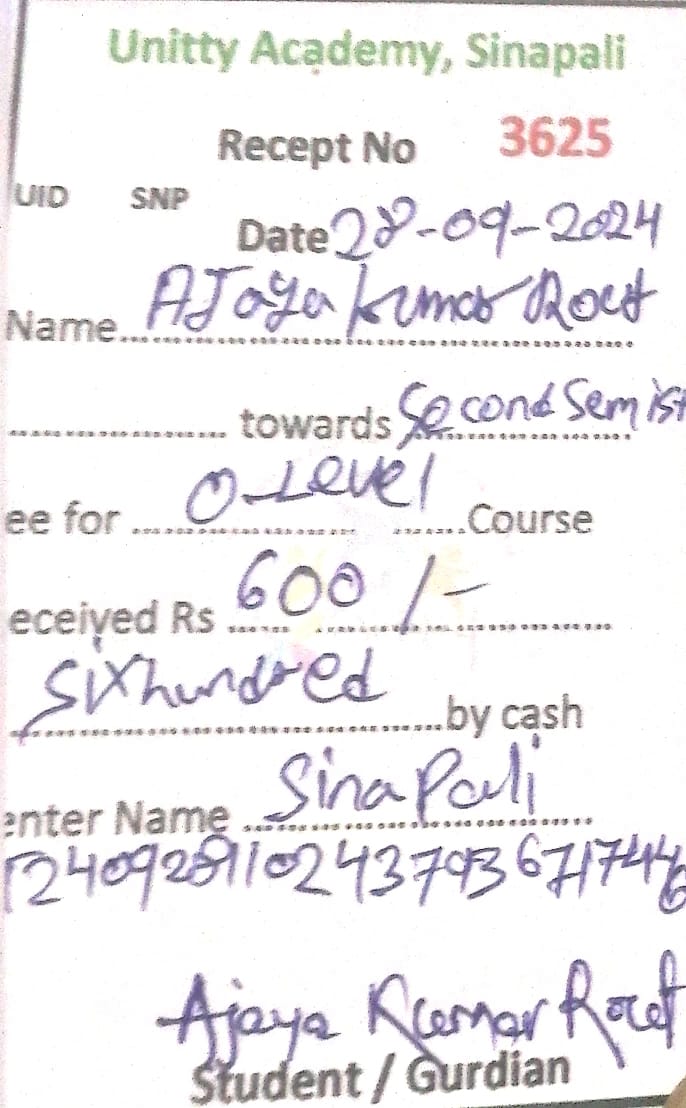 Unitty Academy, Sinapali
Recept No 3625
UID SNP
Date 28-09-2024
Name AJaya Kumar Rout
towards Second Semist
ee for O-Level Course
eceived Rs 600/-
Sixhundred by cash
enter Name SinaPali
Ajaya Kumar Rout
Student / Gurdian